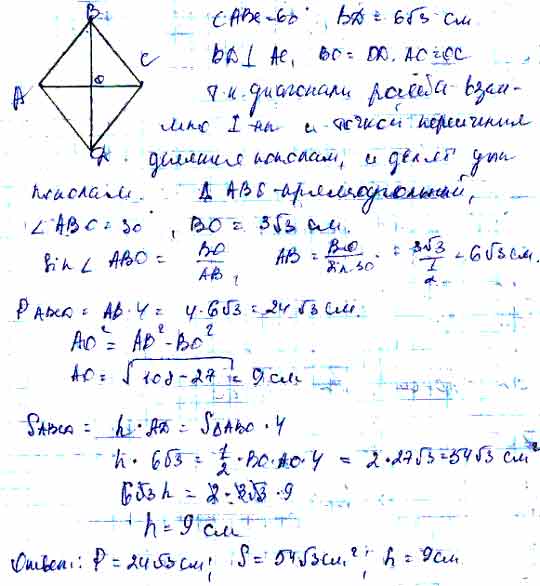 B
C
A
O
D
∠ABC = 60° BD = 6√3 см
BD ⊥ AC, BO = OD, AO = OC
т.к. диагонали ромба взаи-
мно ⊥ ны и точкой пересечения
делятся пополам, и делят углы
пополам. Δ ABO - прямоугольный,
∠ABO = 30°, BO = 3√3 см.
Sin ∠ ABO = BO/AB, AB = BO/Sin 30° = 3√3/(1/2) = 6√3 см.
P ABCD = AB · 4 = 4 · 6√3 = 24√3 см.
AO² = AB² - BO²
AO = √(108 - 27) = 9 см
S ABCD = h · AD = S ΔABO · 4
h · 6√3 = 1/2 · BO · AO · 4 = 2 · 27√3 = 54√3 см²
6√3 h = 2 · 3√3 · 9
h = 9 см
Ответ: P = 24√3 см; S = 54√3 см²; h = 9 см